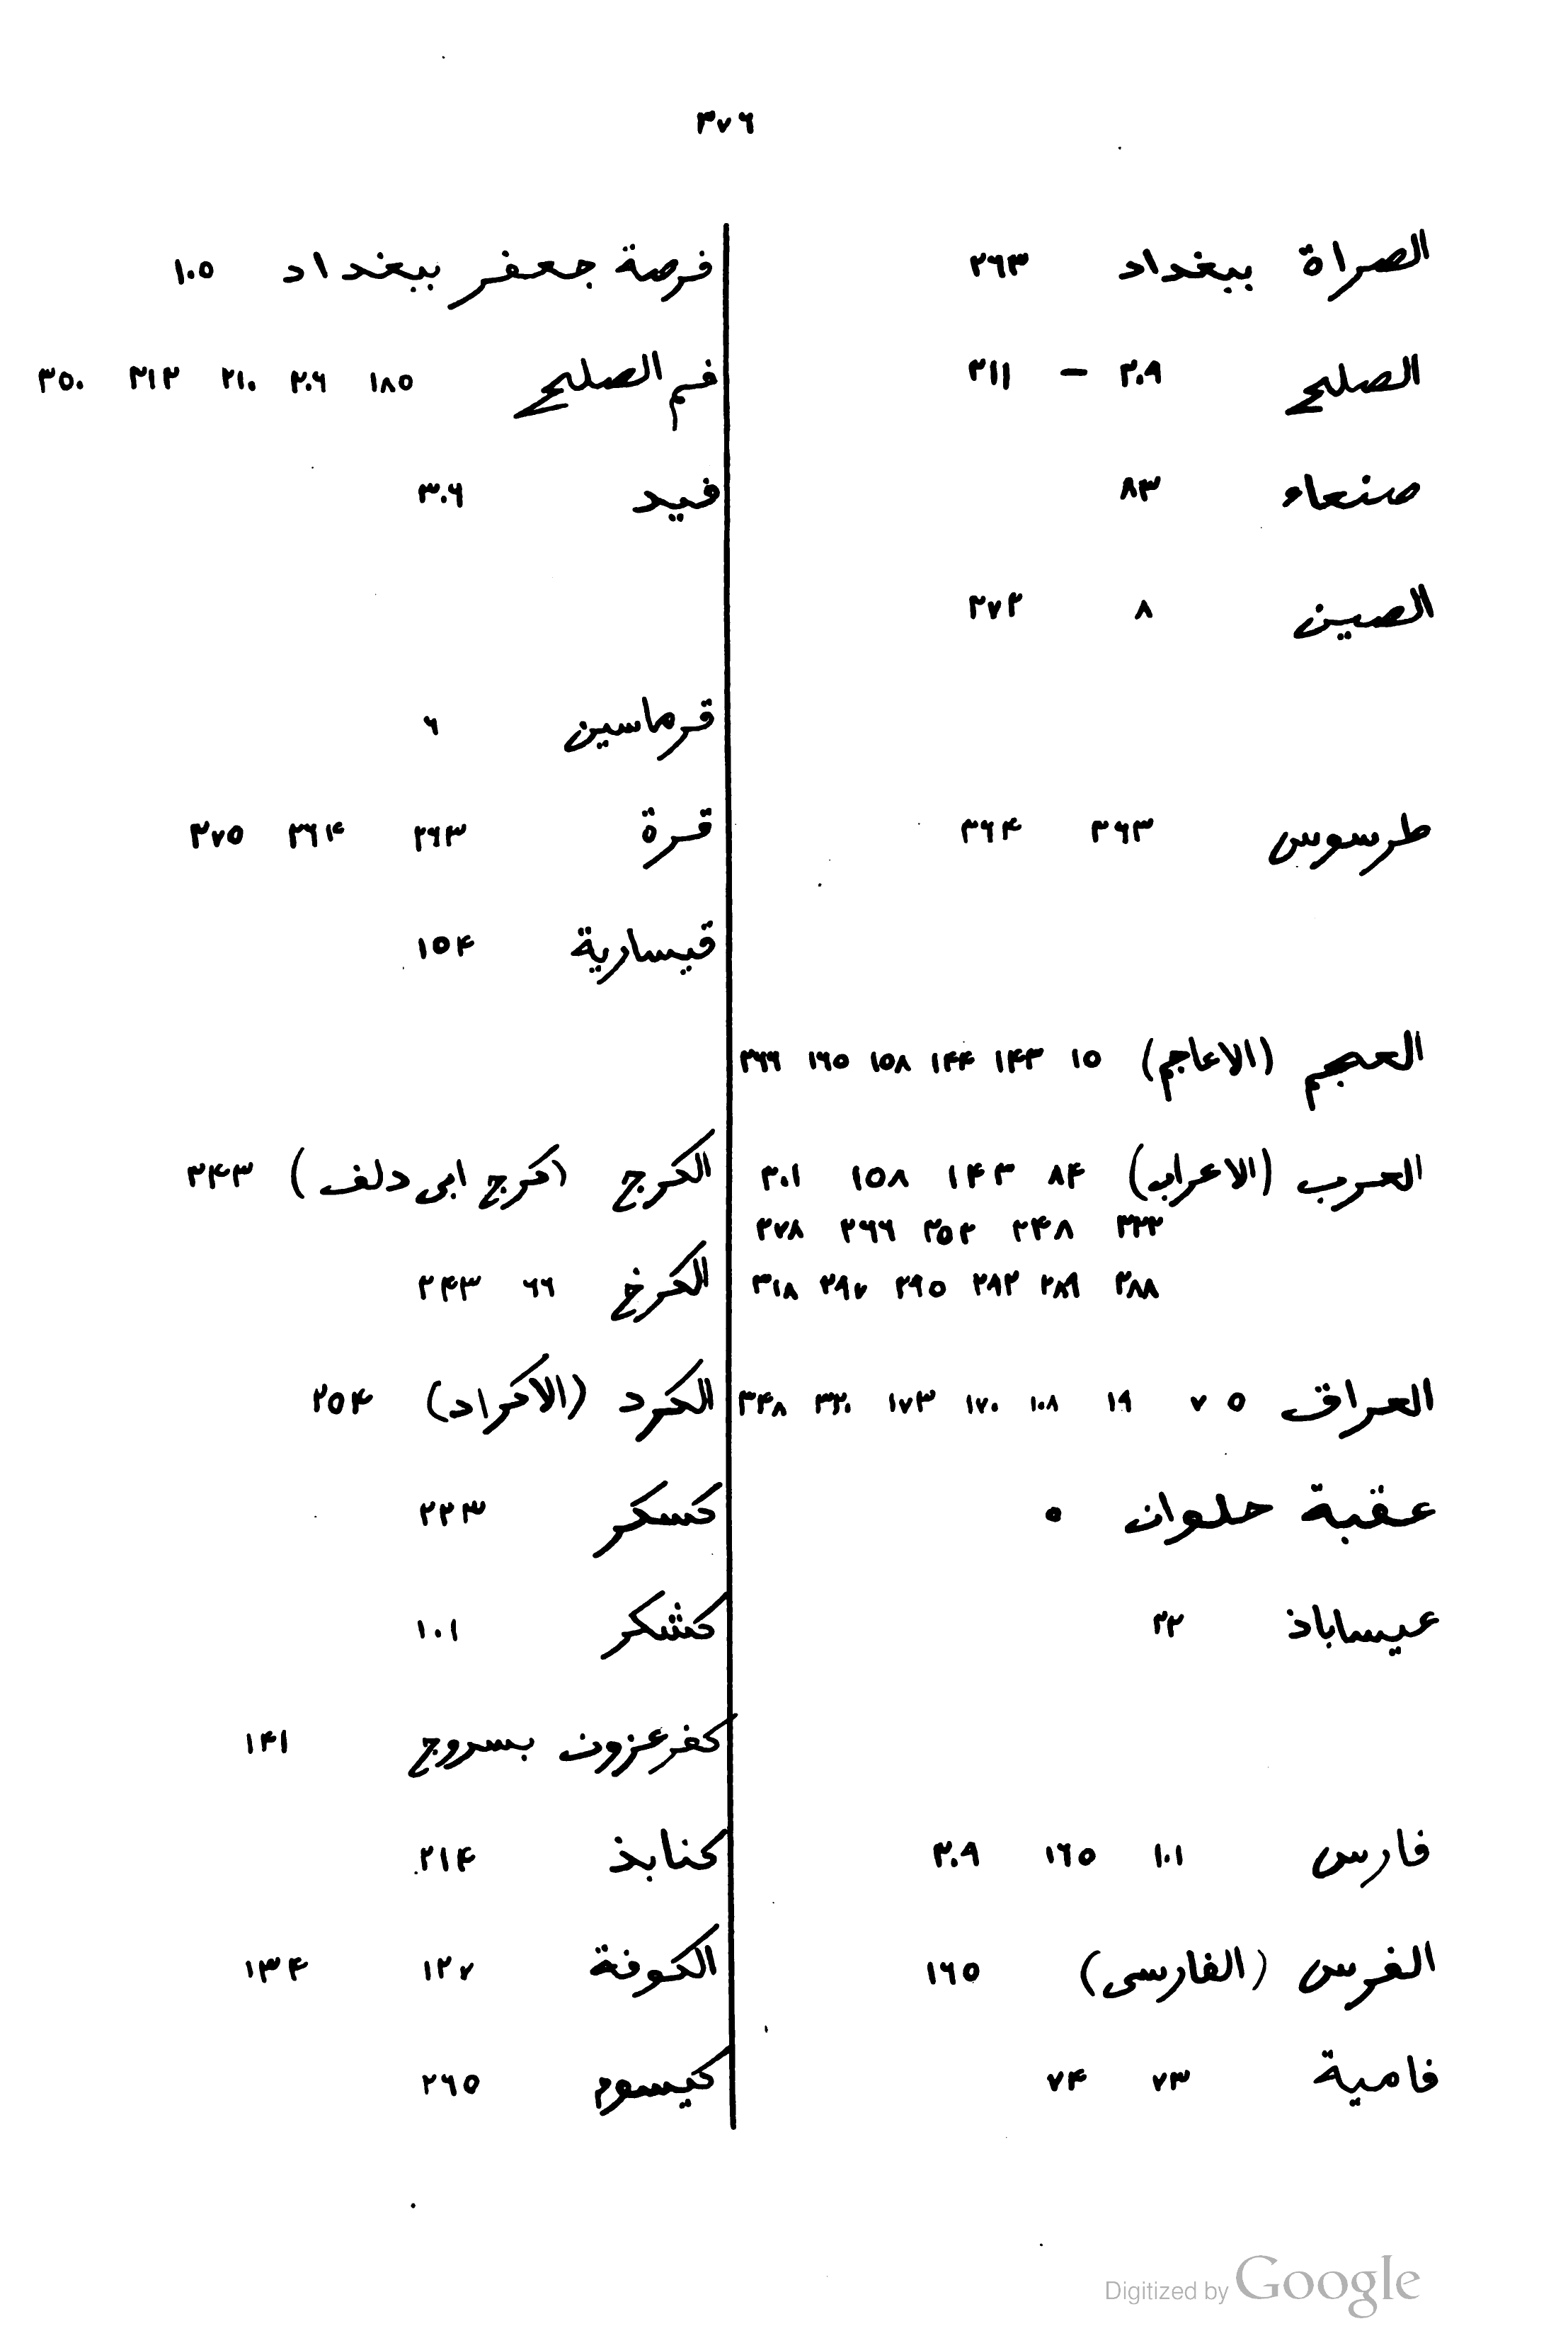 ٣٧٦
الصراة ببغداد ٢٦٣
الصلح ٢٠٩ - ٢١١
صنعاء ٨٣
الصين ٨ ٢٧٢
طرسوس ٢٦٣ ٢٦۴
العجم (الاعاجم) ١٥ ١۴٣ ١۴۴ ١٥٨ ١٦٥ ٢٦٦
العرب (الاعراب) ٨۴ ١۴٣ ١٥٨ ٢٠١
٢٢٢ ٢۴٨ ٢٥٢ ٢٦٦ ٢٧٨
٢٨٨ ٢٨٩ ٢٩٢ ٢٩٥ ٢٩٧ ٣١٨
العراق ٥ ٧ ١٩ ١٠٨ ١٧٠ ١٧٣ ٣٢٠ ٣۴٨
عقبة حلوان ٥
عيساباذ ٢٢
فارس ١٠١ ١٦٥ ٢٠٩
الفرس (الفارسى) ١٦٥
فامية ٧٣ ٧۴
فرصة جعفر ببغداد ١٠٥
فم الصلح ١٨٥ ٢٠٦ ٢١٠ ٢١٢ ٣٥٠
فيد ٣٠٦
قرماسين ٦
قرة ٢٦٣ ٢٦۴ ٢٧٥
قيسارية ١٥۴
الكرج (كرج ابى دلف) ٢۴٣
الكرخ ٦٦ ٢۴٣
الكرد (الاكراد) ٢٥۴
كسكر ٢٢٣
كشكر ١٠١
كفرعزون بسروج ١۴١
كنابذ ٢١۴
الكوفة ١٢٧ ١٣۴
كيسوم ٢٦٥
Digitized by Google